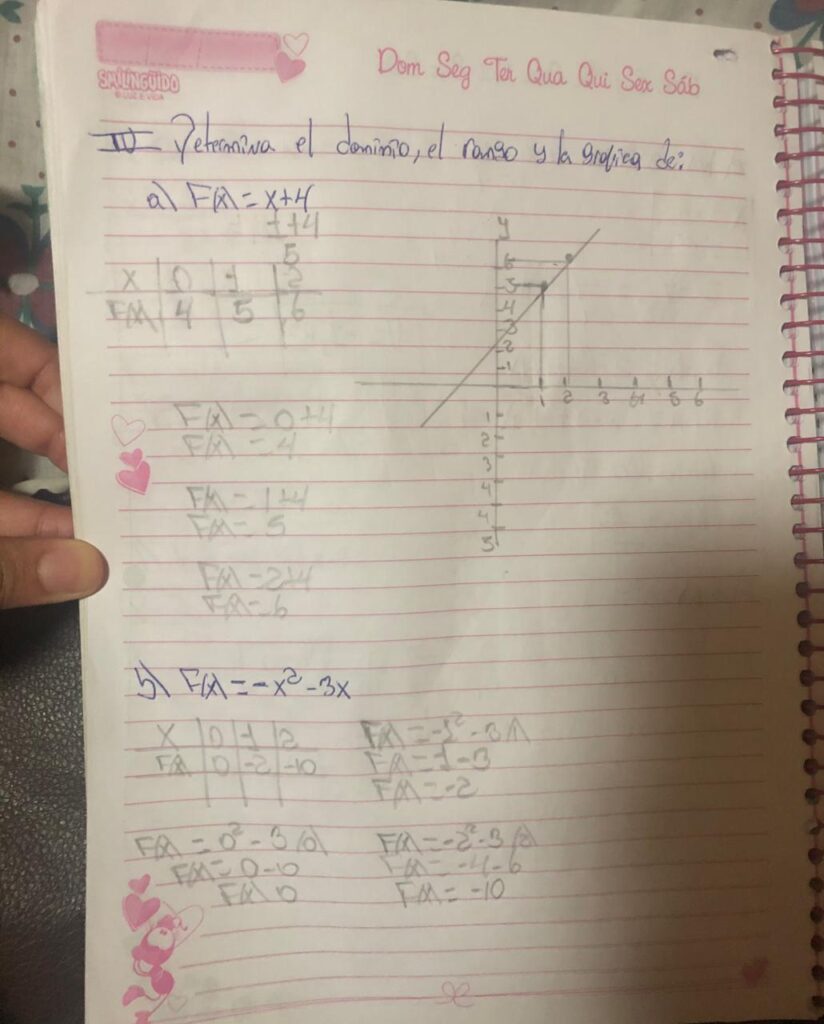 SMILINGÜIDO
© LUZ E VIDA
Dom Seg Ter Qua Qui Sex Sáb
IV Determina el dominio, el rango y la grafica de:
a) F(x) = x+4
1+4
5
X 0 1 2
F(x) 4 5 6
y
6
5
4
3
2
1
1 2 3 4 5 6
1
2
3
4
4
5
F(x) = 0+4
F(x) = 4
F(x) = 1+4
F(x) = 5
F(x) = 2+4
F(x) = 6
b) F(x) = -x² - 3x
X 0 1 2
F(x) 0 -2 -10
F(x) = -1² - 3(1)
F(x) = 1-3
F(x) = -2
F(x) = 0² - 3(0)
F(x) = 0-10
F(x) 0
F(x) = -2² - 3(2)
F(x) = -4-6
F(x) = -10